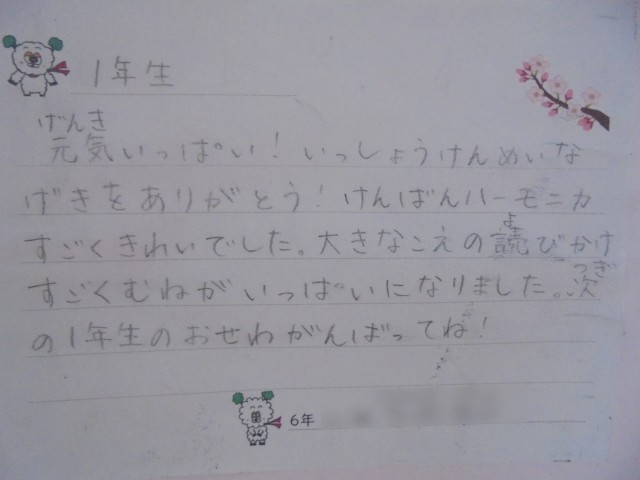 1年生
げんき
元気いっぱい！いっしょうけんめいな
げきをありがとう！けんばんハーモニカ
すごくきれいでした。大きなこえの読びかけ
よ
つぎ
すごくむねがいっぱいになりました。次
の1年生のおせわがんばってね！
6年